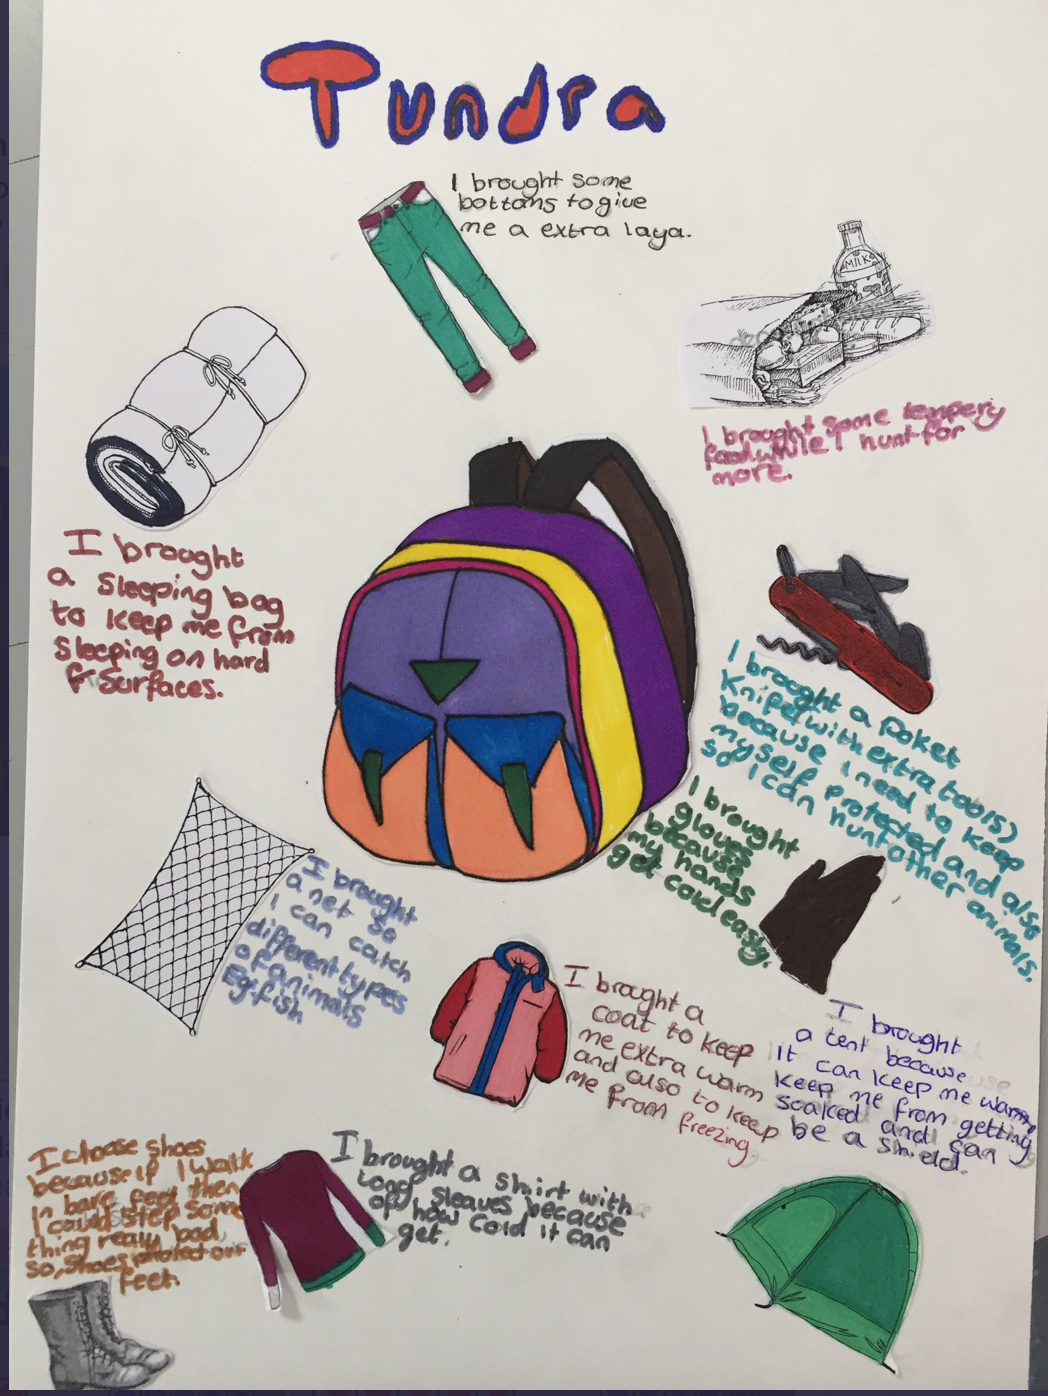 Tundra
I brought some
bottoms to give
me a extra laya.
MILK
I brought some tempery
food while I hunt for
more.
I brought
a sleeping bag
to keep me from
sleeping on hard
surfaces.
I brought a poket
Knife(with extra tools)
because I need to keep
myself protected and also
so I can hunt other animals.
I brought
gloves
because
my hands
get cold easy.
I brought
a net so
I can catch
different types
of animals
Eg:fish
I brought a
coat to keep
me extra warm
and also to keep
me from freezing.
I brought
a tent because
it can keep me warm,
keep me from getting
soaked and can
be a shield.
I choose shoes
because if I walk
in bare feet then
I could step some
thing really bad
so, shoes protect our
feet.
I brought a shirt with
long sleaves because
of how cold it can
get.